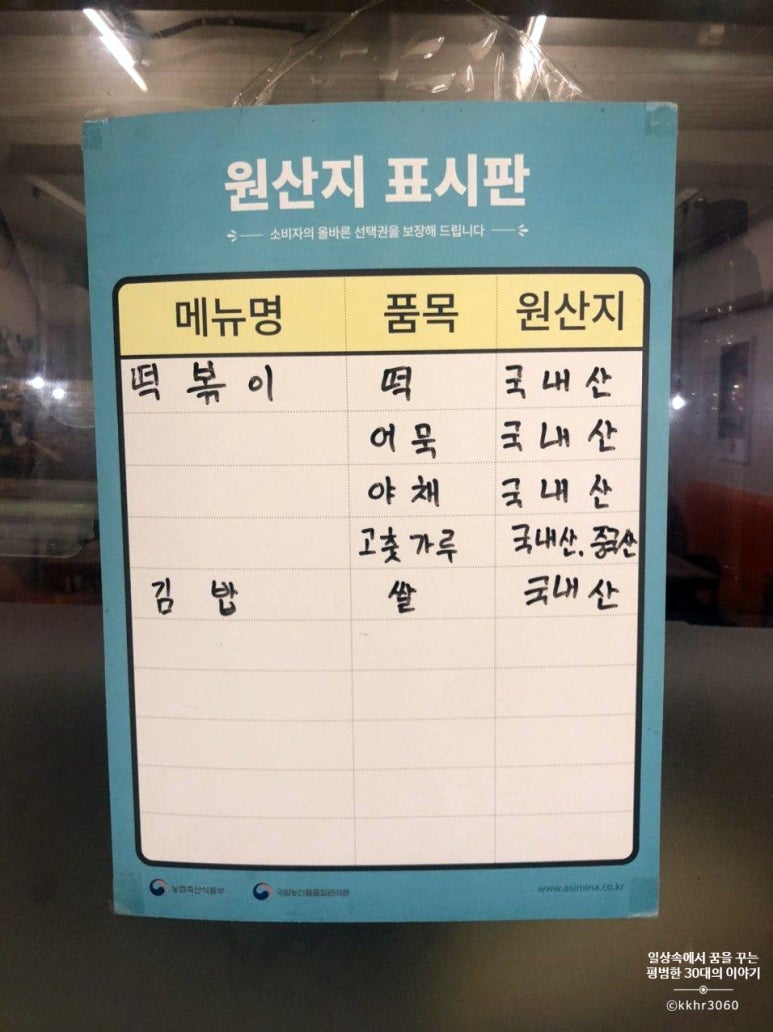 원산지 표시판
소비자의 올바른 선택권을 보장해 드립니다
메뉴명 품목 원산지
떡볶이 떡 국내산
어묵 국내산
야채 국내산
고춧가루 국내산, 중국산
김밥 쌀 국내산
농림축산식품부 국립농산물품질관리원 www.asimina.co.kr
일상속에서 꿈을 꾸는
평범한 30대의 이야기
©kkhr3060